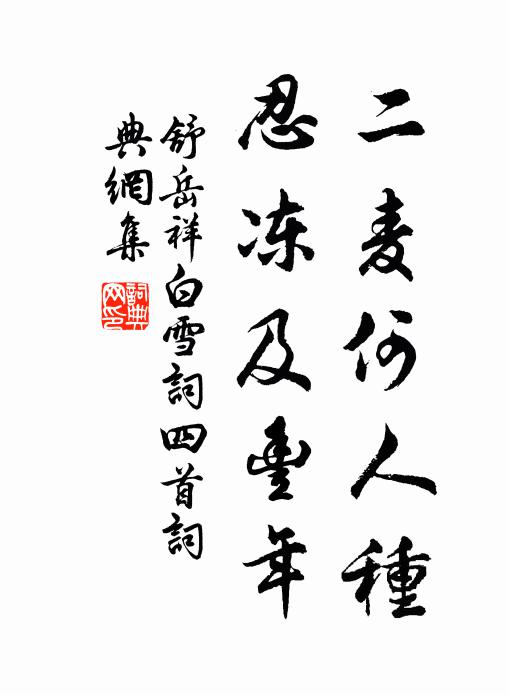 二麦何人種
忍冻及豊年
舒岳祥白雪詞四首詞
典網集
詞典网印